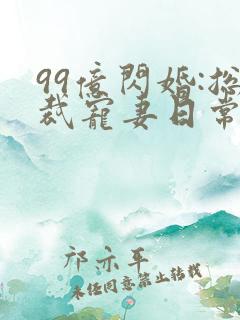 99億閃婚:总
裁寵妻日常
祁示平
未经同意禁止转载